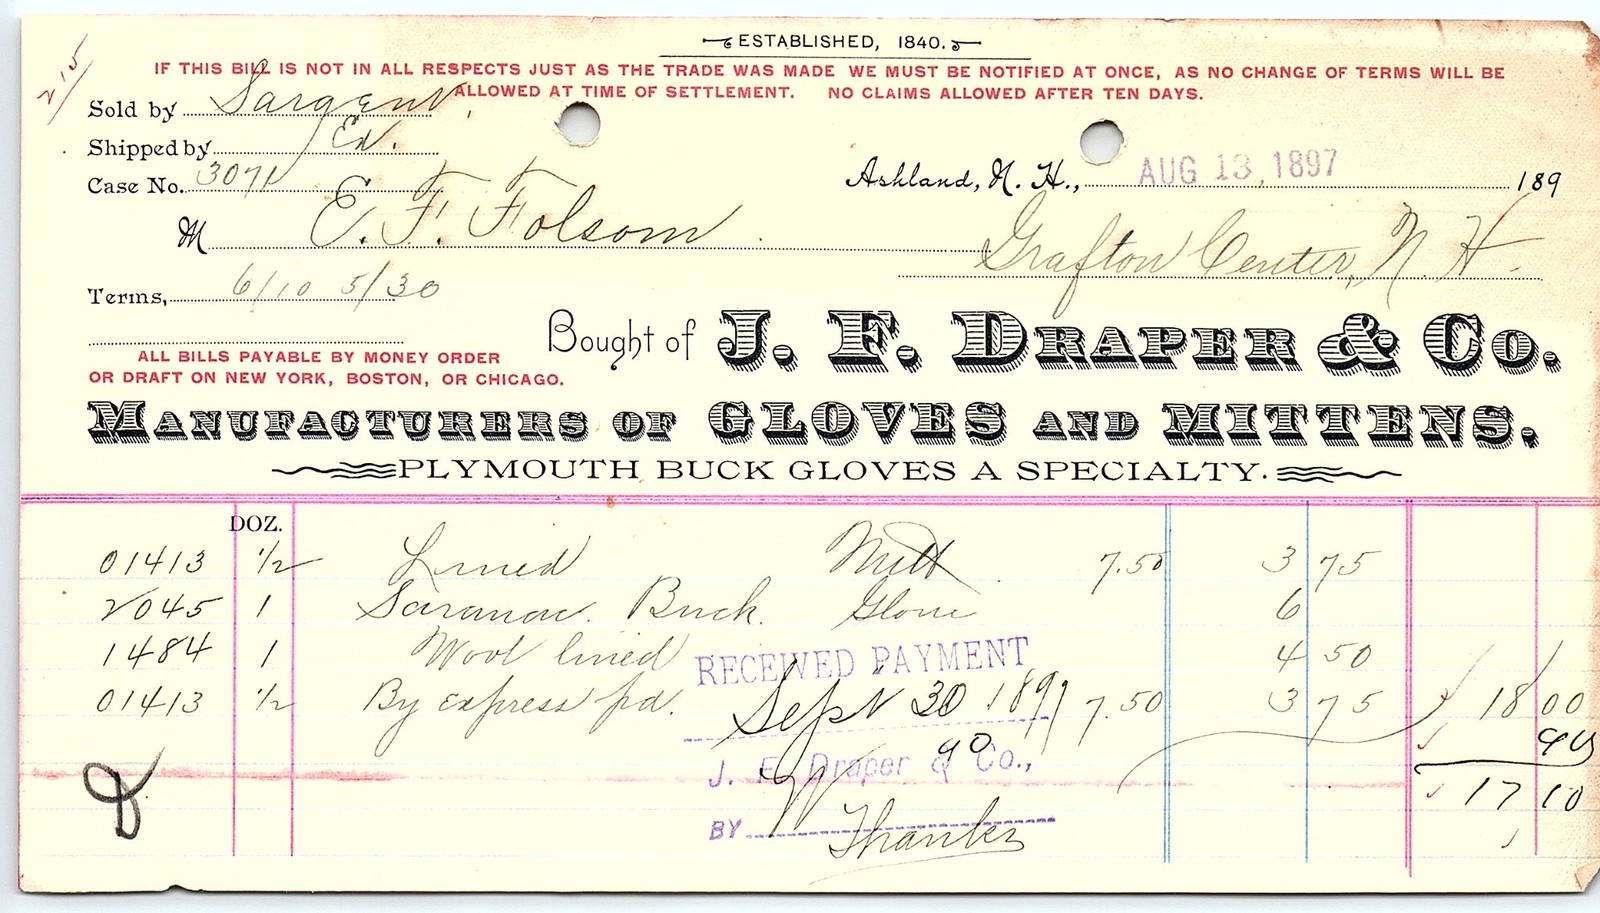 ESTABLISHED, 1840.
IF THIS BILL IS NOT IN ALL RESPECTS JUST AS THE TRADE WAS MADE WE MUST BE NOTIFIED AT ONCE, AS NO CHANGE OF TERMS WILL BE
ALLOWED AT TIME OF SETTLEMENT. NO CLAIMS ALLOWED AFTER TEN DAYS.
215
Sold by Sargent
Shipped by Ex.
Case No. 3071
Ashland, N. H., AUG 13, 1897 189
M E. F. Folsom
Grafton Center, N. H.
Terms, 6/10 5/30
Bought of J. F. DRAPER & CO.
ALL BILLS PAYABLE BY MONEY ORDER
OR DRAFT ON NEW YORK, BOSTON, OR CHICAGO.
MANUFACTURERS OF GLOVES AND MITTENS.
PLYMOUTH BUCK GLOVES A SPECIALTY.
DOZ.
01413 1/2 Lined Mitt 7.50 3 75
2045 1 Saranac Buck Glove 6
1484 1 Wool lined 4 50
01413 1/2 By express pd. 7.50 3 75 18 00
90
17 10
RECEIVED PAYMENT
Sept 30 1897
90
J. F. Draper & Co.,
BY
Thanks